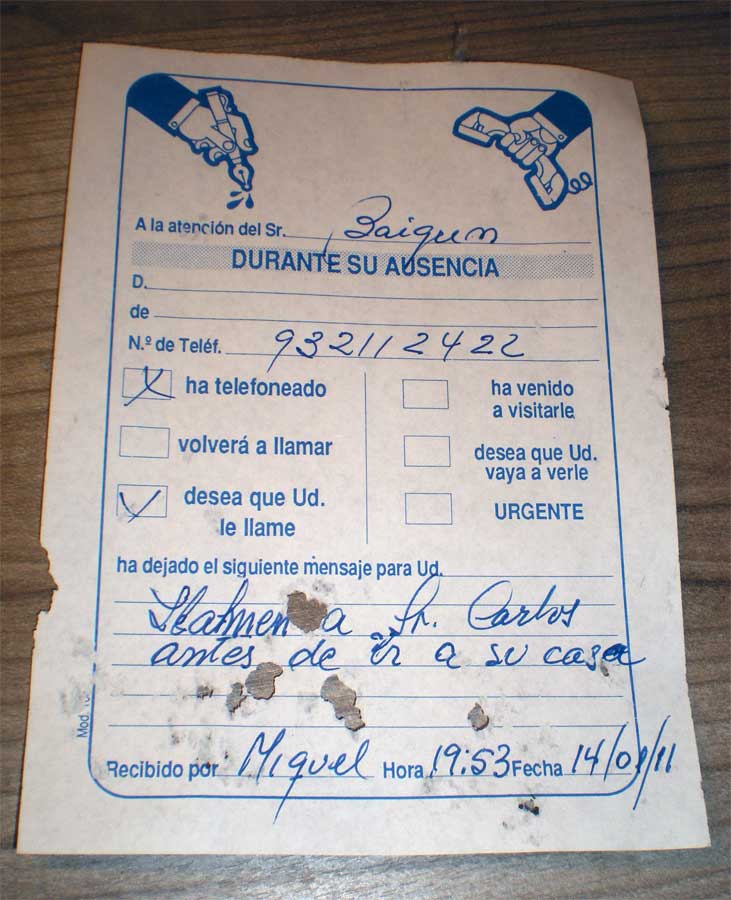 A la atención del Sr. Baigun
DURANTE SU AUSENCIA
D.
de
N.º de Teléf. 932112422
X ha telefoneado
ha venido a visitarle
volverá a llamar
desea que Ud. vaya a verle
✓ desea que Ud. le llame
URGENTE
ha dejado el siguiente mensaje para Ud.
a Sr. Carlos
antes de ir a su casa
Recibido por Miguel Hora 19:53 Fecha 14/01/11
Mod.